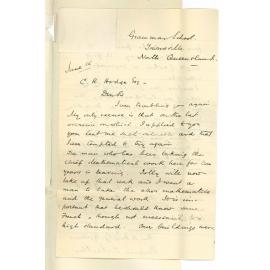 Grammar School,
Townsville
North Queensland.
June
C. R. Hodge Esq.
Dear Sir
I am troubling you again
My only excuse is that on the last
occasion on which I applied to you
you lent me and that
I am compelled to try again
The man who has been taking the
chief Mathematical work here for six
years is leaving. Jolly will now
take up that work and I want a
man to take the other mathematics
and the general work. It is im-
portant that he should know some
French, though not necessarily to a
high standard. Our buildings were